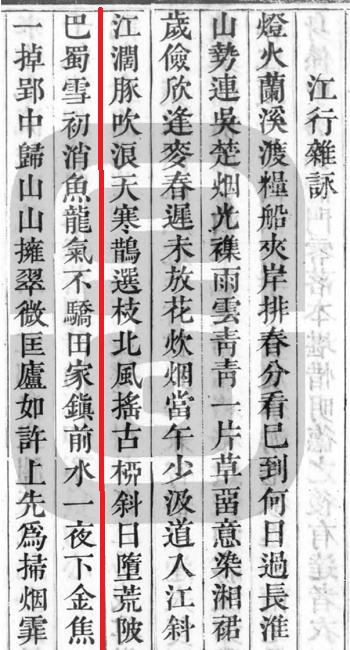 江行雜詠
燈火蘭溪渡糧船夾岸排春分看巳到何日過長淮
山勢連吳楚烟光襍雨雲靑靑一片草畱意染湘裙
歲儉欣逢麥春遲未放花炊烟當午少汲道入江斜
江濶豚吹浪天寒鵲選枝北風搖古桺斜日墮荒陂
巴蜀雪初消魚龍氣不驕田家鎭前水一夜下金焦
一掉郢中歸山山擁翠微匡廬如許上先爲掃烟霏